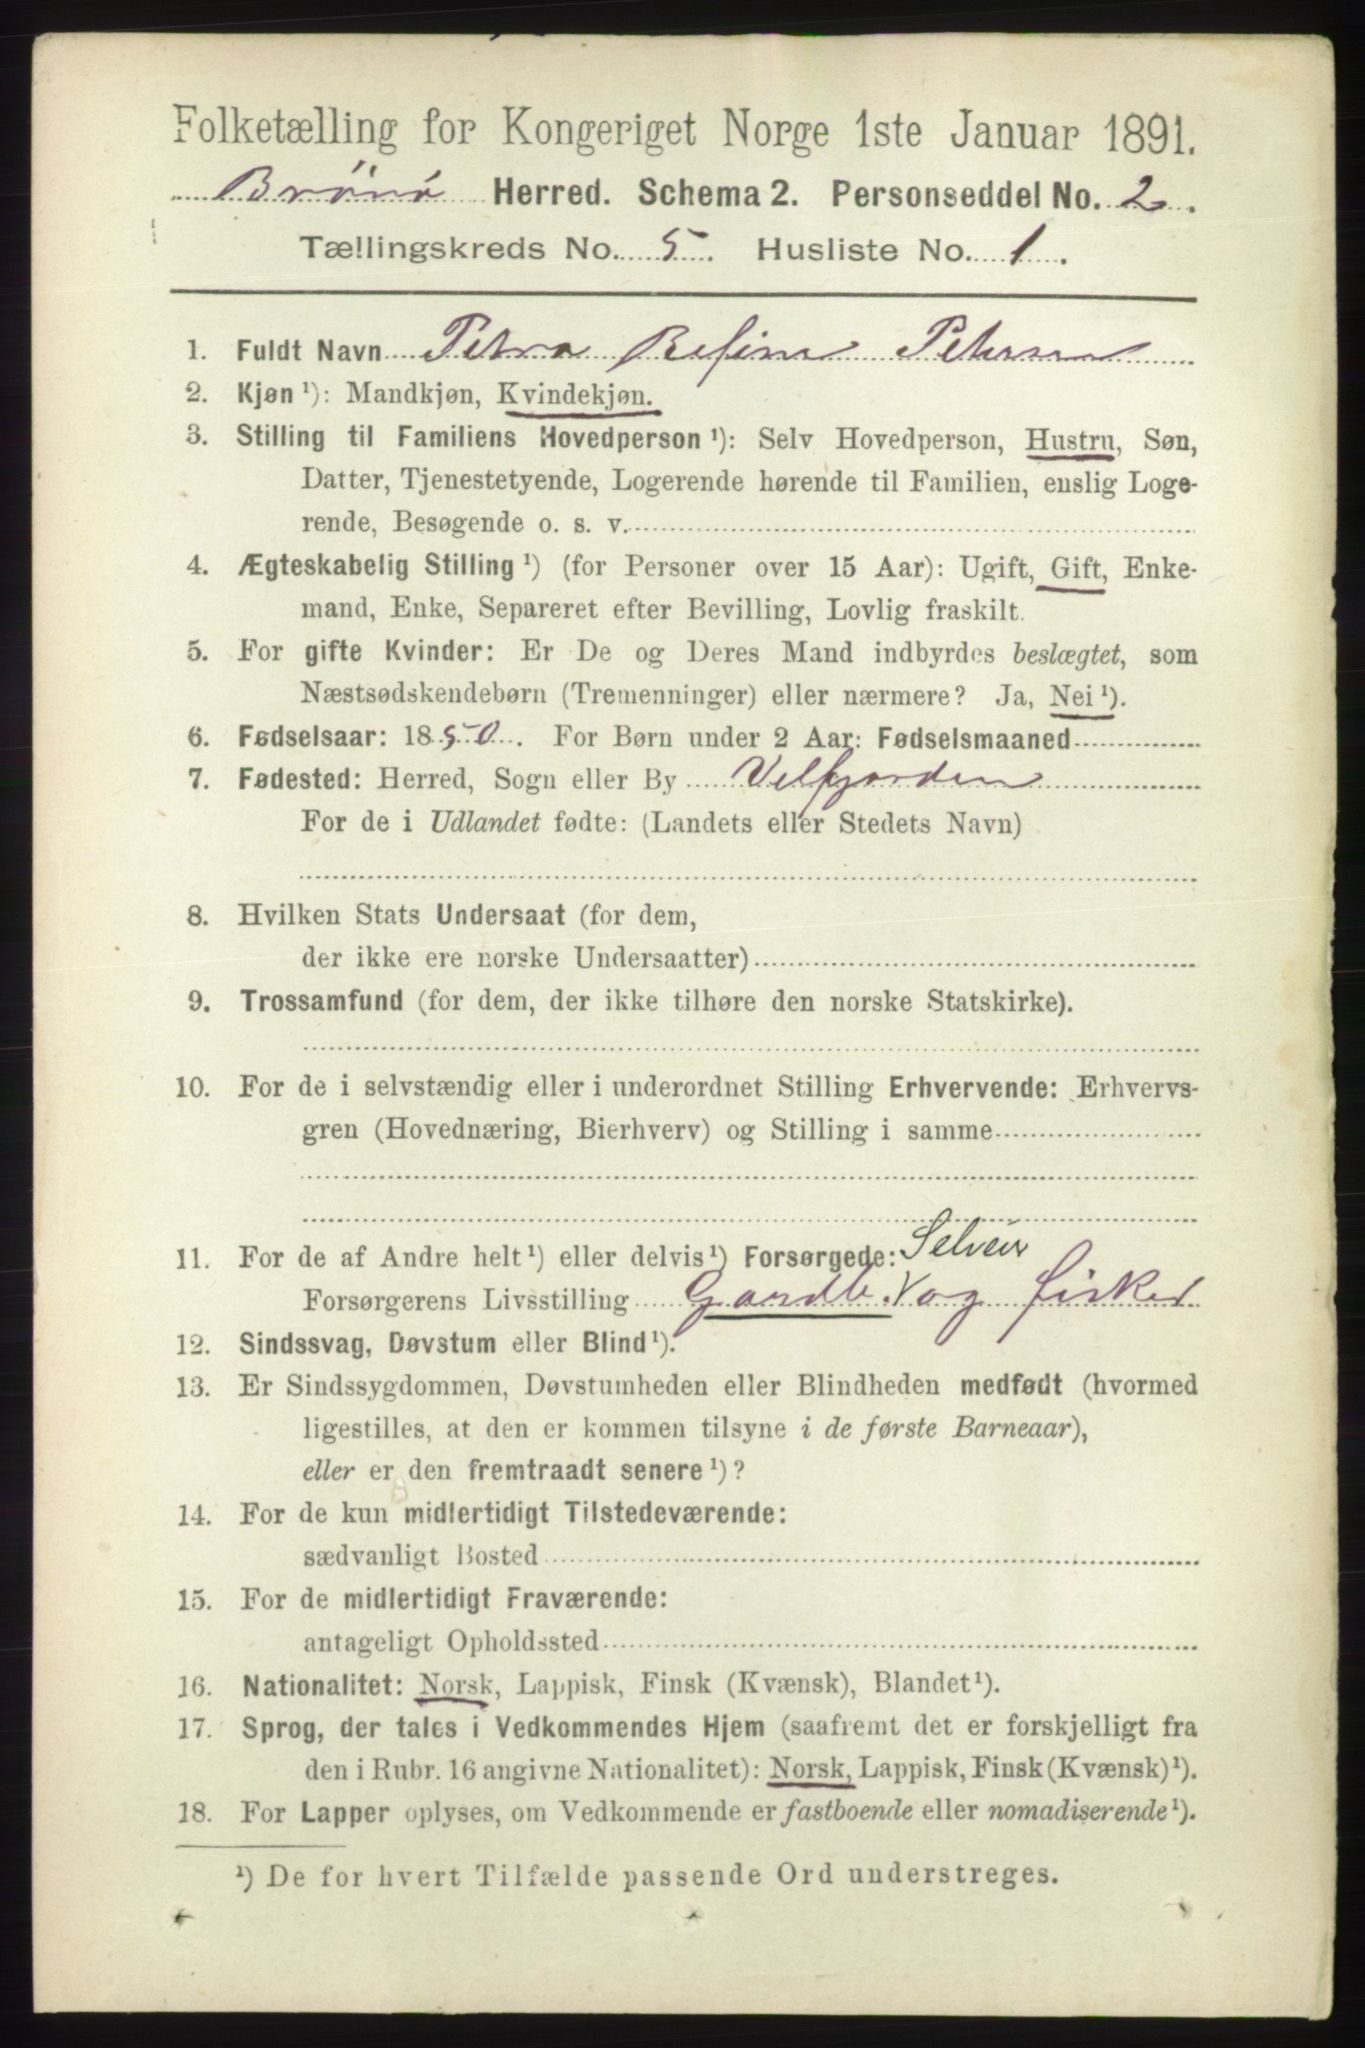 Folketælling for Kongeriget Norge 1ste Januar 1891.
Brönö Herred. Schema 2. Personseddel No. 2.
Tællingskreds No. 5. Husliste No. 1.
1. Fuldt Navn Petra Petersen
2. Kjøn ¹): Mandkjøn, Kvindekjøn.
3. Stilling til Familiens Hovedperson ¹): Selv Hovedperson, Hustru, Søn,
Datter, Tjenestetyende, Logerende hørende til Familien, enslig Loge-
rende, Besøgende o. s. v.
4. Ægteskabelig Stilling ¹) (for Personer over 15 Aar): Ugift, Gift, Enke-
mand, Enke, Separeret efter Bevilling, Lovlig fraskilt.
5. For gifte Kvinder: Er De og Deres Mand indbyrdes beslægtet, som
Næstsødskendebørn (Tremenninger) eller nærmere? Ja, Nei ¹).
6. Fødselsaar: 1850. For Børn under 2 Aar: Fødselsmaaned
7. Fødested: Herred, Sogn eller By Velfjorden
For de i Udlandet fødte: (Landets eller Stedets Navn)
8. Hvilken Stats Undersaat (for dem,
der ikke ere norske Undersaatter)
9. Trossamfund (for dem, der ikke tilhøre den norske Statskirke).
10. For de i selvstændig eller i underordnet Stilling Erhvervende: Erhvervs-
gren (Hovednæring, Bierhverv) og Stilling i samme
11. For de af Andre helt ¹) eller delvis ¹) Forsørgede: Selveier
Forsørgerens Livsstilling Gaardb. og fisker
12. Sindssvag, Døvstum eller Blind ¹).
13. Er Sindssygdommen, Døvstumheden eller Blindheden medfødt (hvormed
ligestilles, at den er kommen tilsyne i de første Barneaar),
eller er den fremtraadt senere ¹)?
14. For de kun midlertidigt Tilstedeværende:
sædvanligt Bosted
15. For de midlertidigt Fraværende:
antageligt Opholdssted
16. Nationalitet: Norsk, Lappisk, Finsk (Kvænsk), Blandet ¹).
17. Sprog, der tales i Vedkommendes Hjem (saafremt det er forskjelligt fra
den i Rubr. 16 angivne Nationalitet): Norsk, Lappisk, Finsk (Kvænsk) ¹).
18. For Lapper oplyses, om Vedkommende er fastboende eller nomadiserende ¹).
¹) De for hvert Tilfælde passende Ord understreges.